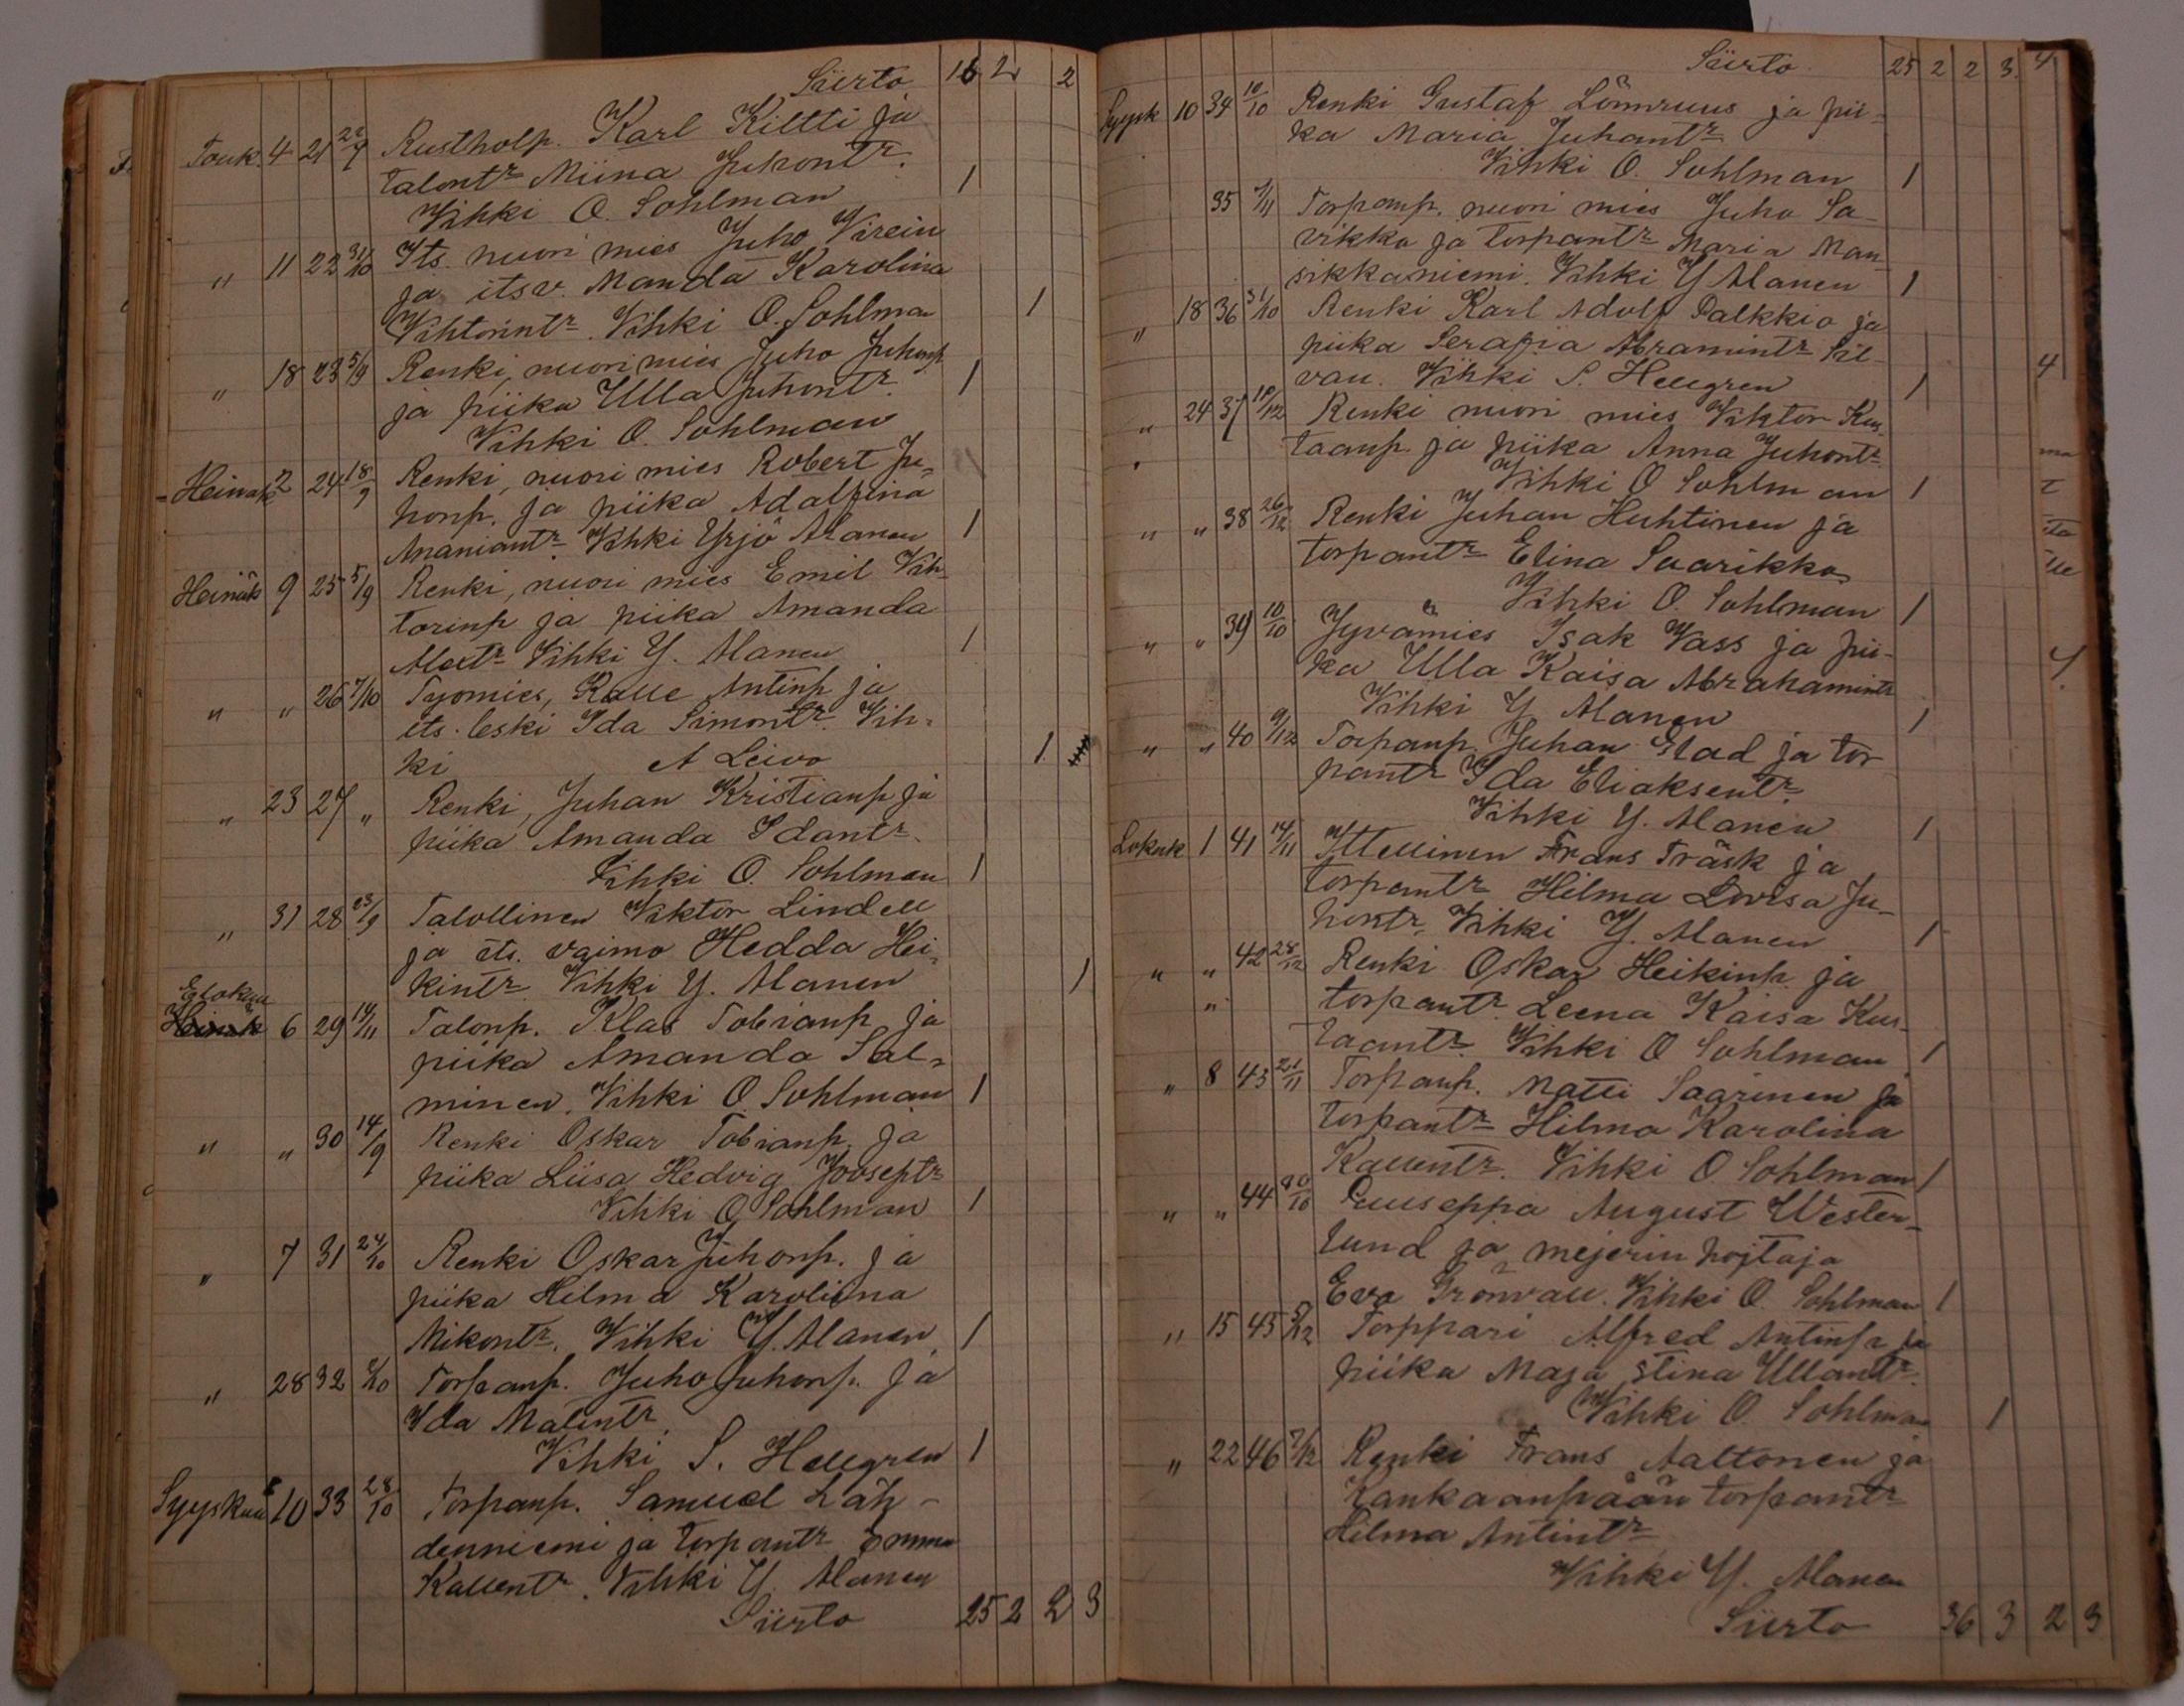 Siirto 16 2 2
Touk. 4 21 22/9 Rustholp. Karl Kiltti ja
talontr Miina Juhontr.
Vihki O. Sohlman 1
" 11 22 31/10 Its. nuori mies Juho Virein
ja itsv. Manda Karolina
Vihtorintr. Vihki O. Sohlman 1
" 18 23 5/9 Renki, nuori mies Juho Juhonp.
ja piika Ulla Juhontr. 1
Vihki O. Sohlman
Heinäk 2 24 18/9 Renki, nuori mies Robert Ju-
honp. ja piika Adalfina
Ananiantr. Vihki Yrjö Alanen 1
Heinäk 9 25 5/9 Renki, nuori mies Emil Vih-
torinp ja piika Amanda
Alextr Vihki Y. Alanen 1
" " 26 7/10 Työmies, Kalle Antinp ja
its. leski Ida Simontr. Vih-
ki A Leivo 1
" 23 27 " Renki, Juhan Kristianp ja
piika Amanda Idantr.
Vihki O. Sohlman 1
" 31 28 23/9 Talollinen Viktor Lindell
ja its. vaimo Hedda Hei-
kintr. Vihki Y. Alanen 1
Elokuu
Heinäk 6 29 14/11 Talonp. Klas Tobianp ja
piika Amanda Sal-
minen. Vihki O. Sohlman 1
" " 30 14/9 Renki Oskar Tobianp. ja
piika Liisa Hedvig Jooseptr
Vihki O. Sohlman 1
" 7 31 24/10 Renki Oskar Juhonp. ja
piika Hilma Karoliina
Mikontr. Vihki Y. Alanen 1
" 28 32 /10 Torpanp. Juho Juhonp. ja
Ida Matintr.
Vihki S. Hellgren 1
Syyskuu 10 33 28/10 Torpanp. Samuel Läh-
denniemi ja torpantr Emma
Kallentr. Vihki Y. Alanen
Siirto 25 2 2 3
Siirto 25 2 2 3 4
Syysk 10 34 10/10 Renki Gustaf Lönnruus ja pii-
ka Maria Juhantr
Vihki O. Sohlman 1
35 7/11 Torpanp. nuori mies Juho Sa-
vikko ja torpantr Maria Man-
sikkaniemi. Vihki Y Alanen 1
" 18 36 31/10 Renki Karl Adolf Palkkio ja
piika Serafia Abramintr Sil-
van. Vihki S. Hellgren 1
4
" 24 37 10/12 Renki nuori mies Viktor Kus-
taanp. ja piika Anna Juhontr.
Vihki O Sohlman 1
" " 38 26/12 Renki Juhan Huhtinen ja
torpantr Elina Saarikko
Vihki O. Sohlman 1
" " 39 10/10 Jyvämies Isak Vass ja pii-
ka Ulla Kaisa Abrahamintr
Vihki Y Alanen 1
" " 40 9/12 Torpanp. Juhan Elad ja tor
pantr Ida Eliaksentr.
Vihki Y. Alanen 1
Lokuk 1 41 14/11 Ittellinen Frans Träsk ja
torpantr Hilma Lovisa Ju-
hontr. Vihki Y. Alanen 1
" " 42 28/12 Renki Oskar Heikinp ja
" torpantr. Leena Kaisa Kus-
taantr. Vihki O Sohlman 1
" 8 43 21/11 Torpanp. Matti Saarinen ja
torpantr Hilma Karolina
Kallentr. Vihki O Sohlman 1
" " 44 30/10 Puuseppa August Wester-
lund ja mejerin hojtaja
Eva Grönvall. Vihki O. Sohlman 1
" 15 45 5/12 Torppari Alfred Antinp ja
piika Maja Stina Ullantr.
Vihki O. Sohlman 1
" 22 46 7/12 Renki Frans Aaltonen ja
Kankaanpään torpantr
Hilma Antintr
Vihki Y. Alanen
Siirto 36 3 2 3